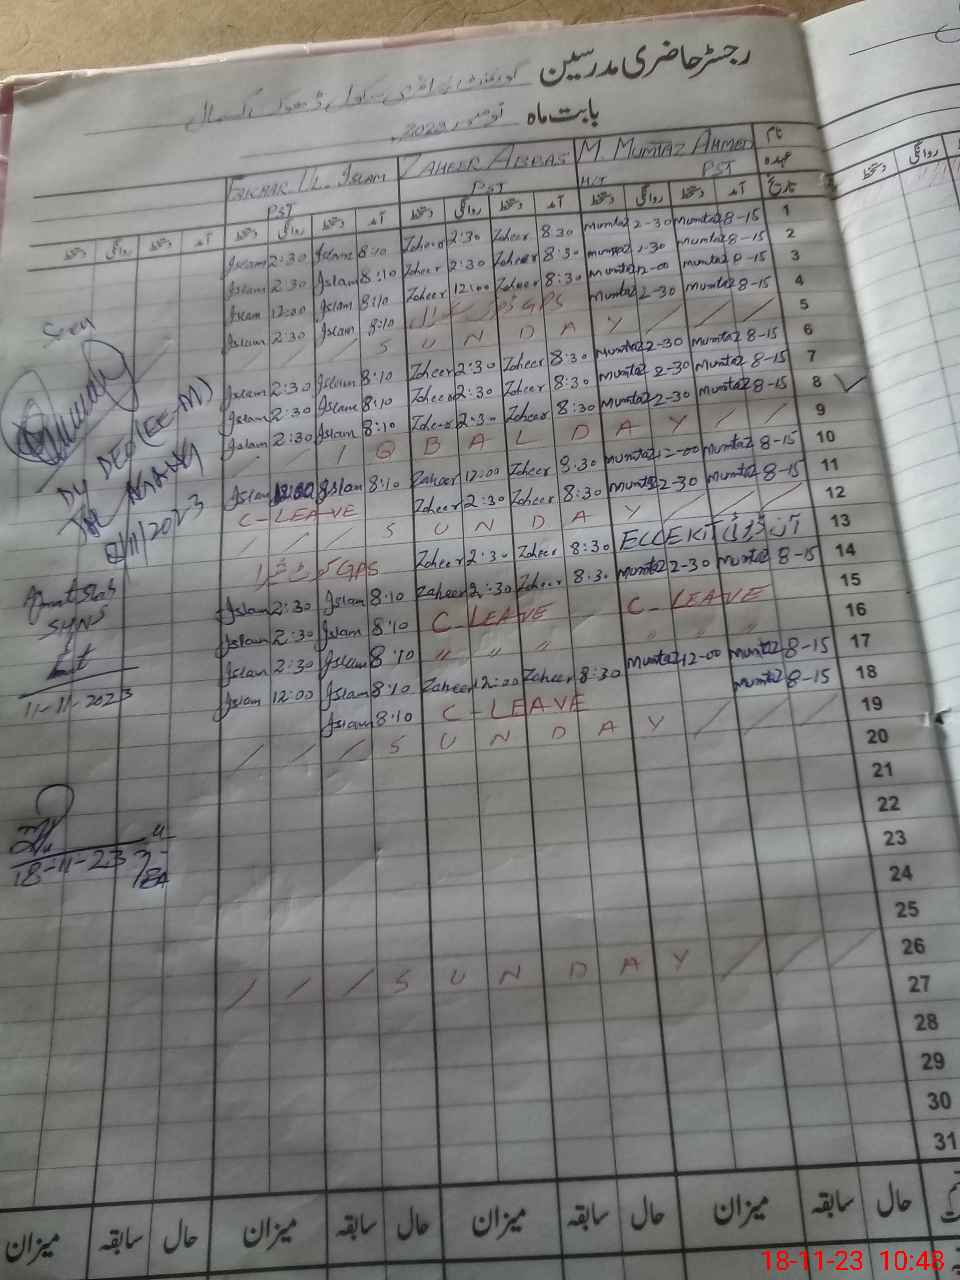 رجسٹر حاضری مدرسین
بابت ماہ نومبر 2023
نام
عہدہ
تاریخ
M. MUMTAZ AHMED
PST
H/T
ZAHEER ABBAS
PST
UL. ISLAM
PST
آمد دستخط روانگی دستخط آمد دستخط روانگی دستخط آمد دستخط روانگی دستخط آمد دستخط روانگی دستخط
Islam 2:30 Islam 8:10 Zaheer 2:30 Zaheer 8:30 Mumtaz 2-30 Mumtaz 8-15 1
Islam 2:30 Islam 8:10 Zaheer 2:30 Zaheer 8:30 Mumtaz 2-30 Mumtaz 8-15 2
Islam 12:00 Islam 8:10 Zaheer 12:00 Zaheer 8:30 Mumtaz 12-00 Mumtaz 8-15 3
Islam 2:30 Islam 8:10 GPS Mumtaz 2-30 Mumtaz 8-15 4
SUNDAY 5
Islam 2:30 Islam 8:10 Zaheer 2:30 Zaheer 8:30 Mumtaz 2-30 Mumtaz 8-15 6
Islam 2:30 Islam 8:10 Zaheer 2:30 Zaheer 8:30 Mumtaz 2-30 Mumtaz 8-15 7
Islam 2:30 Islam 8:10 Zaheer 2:30 Zaheer 8:30 Mumtaz 2-30 Mumtaz 8-15 8
IQBAL DAY 9
Islam 12:00 Islam 8:10 Zaheer 12:00 Zaheer 8:30 Mumtaz 12-00 Mumtaz 8-15 10
C-LEAVE Zaheer 2:30 Zaheer 8:30 Mumtaz 2-30 Mumtaz 8-15 11
SUNDAY 12
GPS Zaheer 2:30 Zaheer 8:30 13
Islam 2:30 Islam 8:10 Zaheer 2:30 Zaheer 8:30 Mumtaz 2-30 Mumtaz 8-15 14
Islam 2:30 Islam 8:10 C-LEAVE C-LEAVE 15
Islam 2:30 Islam 8:10 " " " " " " " 16
Islam 12:00 Islam 8:10 Zaheer 12:00 Zaheer 8:30 Mumtaz 12-00 Mumtaz 8-15 17
Islam 8:10 C-LEAVE Mumtaz 8-15 18
SUNDAY 19
20
21
22
23
24
25
SUNDAY 26
27
28
29
30
31
Seen
Dy DEO (EE-M)
2023
11-11-2023
18-11-23
حال سابقہ میزان حال سابقہ میزان حال سابقہ میزان حال سابقہ میزان
روانگی دستخط
18-11-23 10:48